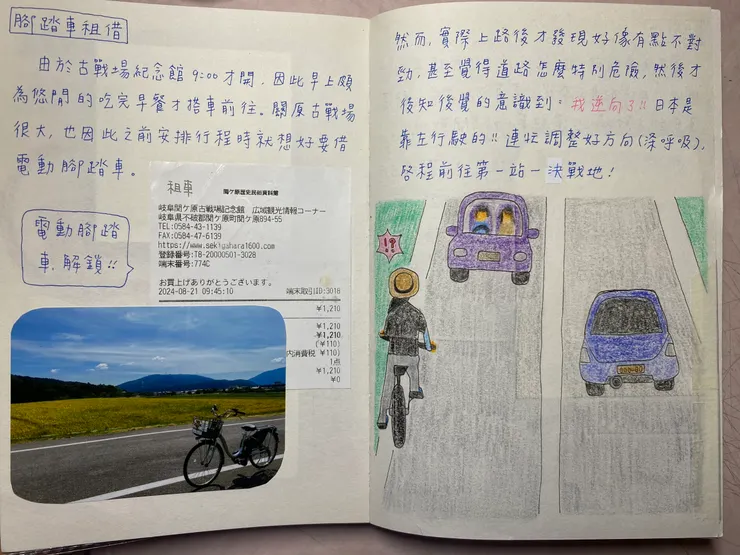 腳踏車租借
由於古戰場紀念館 9:00 才開,因此早上頗
為悠閒的吃完早餐才搭車前往。關原古戰場
很大,也因此之前安排行程時就想好要借
電動腳踏車。
租車
関ケ原歴史民俗資料館
岐阜関ケ原古戦場記念館 広域観光情報コーナー
岐阜県不破郡関ケ原町関ケ原894-55
TEL:0584-43-1139
FAX:0584-47-6139
https://www.sekigahara1600.com
登録番号:T8-20000501-3028
端末番号:774C
お買上げありがとうございます。
2024-08-21 09:45:10 端末取引ID:3018
¥1,210
¥1,210
¥1,210
(¥110)
内消費税 ¥110)
1点
¥1,210
¥0
電動腳踏
車,解鎖!!
然而,實際上路後才發現好像有點不對
勁,甚至覺得道路怎麼特別危險,然後才
後知後覺的意識到:我逆向了!!日本是
靠左行駛的!!連忙調整好方向(深呼吸),
啓程前往第一站—決戰地!
!?